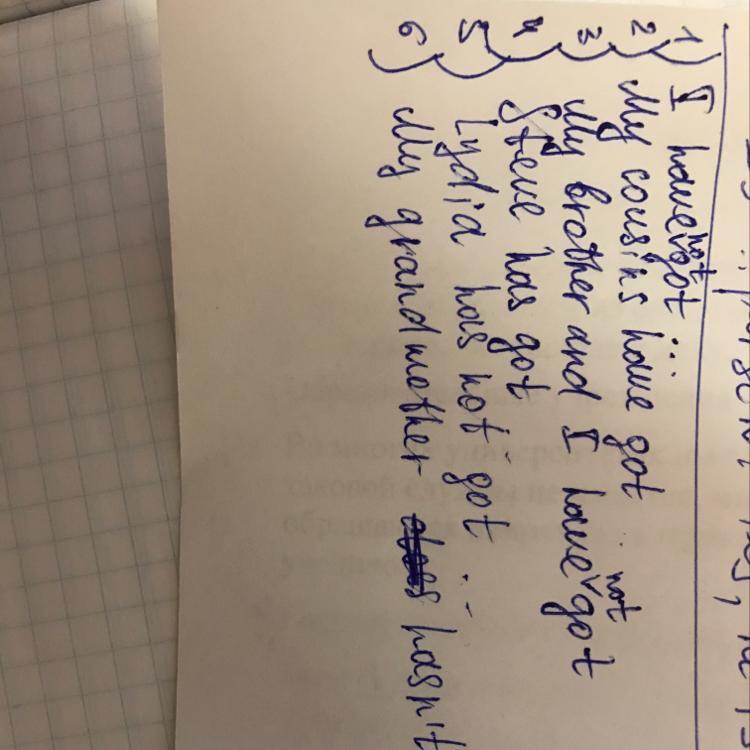 1) I have not got ...
2) My cousins have got
3) My brother and I have not got
4) Steve has got
5) Lydia has not got ...
6) My grandmother hasn't